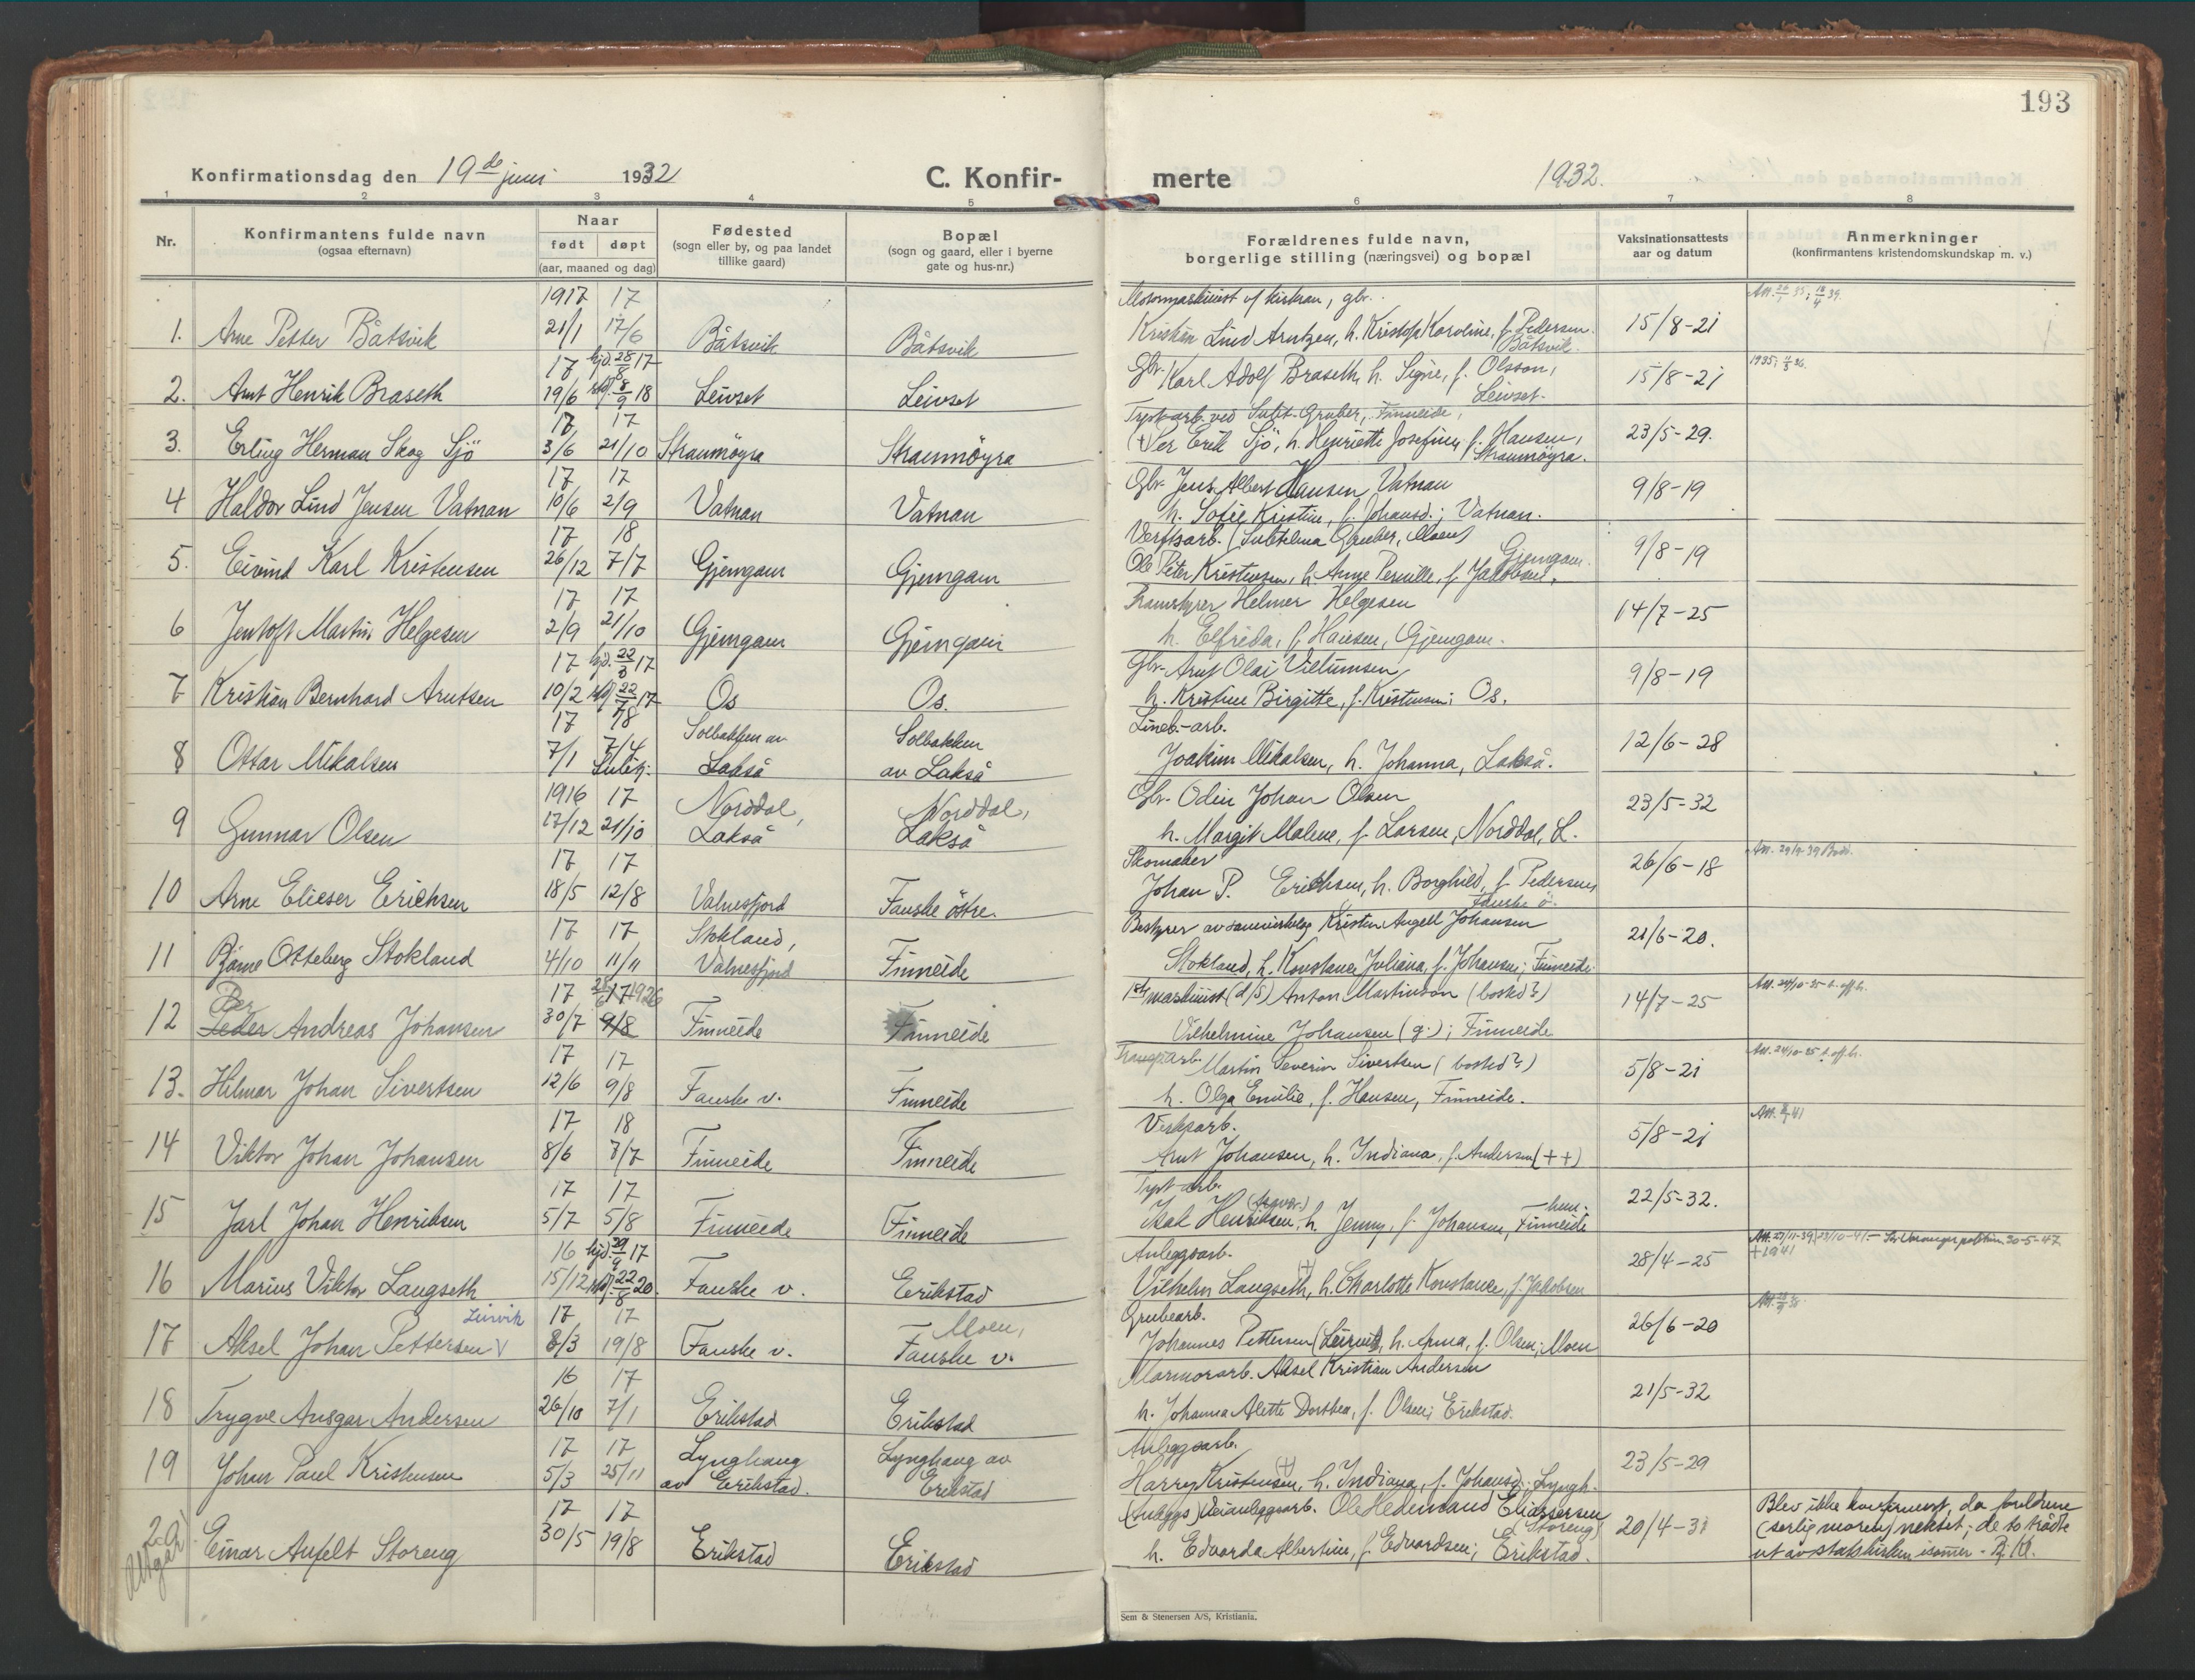 193
Konfirmationsdag den 19de juni 1932 C. Konfir- merte 1932.
1 2 3 4 5 6 7 8
Nr.
Konfirmantens fulde navn
(ogsaa efternavn)
Naar
født døpt
(aar, maaned og dag)
Fødested
(sogn eller by, og paa landet
tillike gaard)
Bopæl
(sogn og gaard, eller i byerne
gate og hus-nr.)
Forældrenes fulde navn,
borgerlige stilling (næringsvei) og bopæl
Vaksinationsattests
aar og datum
Anmerkninger
(konfirmantens kristendomskundskap m. v.)
1917 17
1. Arne Petter Båtsvik 21/1 17/6 Båtsvik Båtsvik
Kristian Lind Arntzen, h. Karoline, f. Pedersen. 15/8-21
Båtsvik.
17 hjd. 28/8 17
2. Arnt Henrik Braseth 19/6 8/9 18 Leivset Leivset
Gbr. Karl Adolf Braseth, h. Signe, f. Olsson, 15/8-21
Leivset.
17 17
3. Erling Herman Skog Sjö 3/6 21/10 Straumöyra Straumöyra
arb. ved Sulit. Gruber, Finneide,
(+) Per Erik Sjö, h. Henriette Josefine, f. Hansen, 23/5-29.
Straumöyra.
17 17
4 Haldor Lind Jensen Vatnan 10/6 2/9 Vatnan Vatnan
Gbr. Jens Albert Hansen Vatnan 9/8-19
h. Sofie Kristine, f. Johansd.; Vatnan.
17 18
5. Eivind Karl Kristensen 26/12 7/7 Gjemgam Gjemgam
Verftsarb. (Sulitelma Gruber, Moen)
Gjemgam.
Ole Peter Kristensen, h. Anne Pernille, f. Jakobsen. 9/8-19
17 17
6 Jentoft Martin Helgesen 2/9 21/10 Gjemgam Gjemgam
Pramstyrer Helmer Helgesen 14/7-25
h. Elfrida, f. Hansen, Gjemgam.
17 hjd. 22/3 17
7 Kristian Bernhard Arntsen 10/2 22/7 17 Os Os.
Gbr. Arnt Olai Villumsen 9/8-19
h. Kristine Birgitte, f. Kristensen; Os.
17 18
8 Ottar Mikalsen 7/1 7/4 Solbakken av Lakså Solbakken av Lakså
Sulitj.
Lineb.-arb.
Joakim Mikalsen, h. Johanna, Lakså. 12/6-28
1916 17
9 Gunnar Olsen 17/12 21/10 Norddal, Lakså Norddal, Lakså
Gbr. Odin Johan Olsen 23/5-32
h. Margit Malene, f. Larsen, Norddal, L.
17 17
10 Arne Elieser Erichsen 18/5 12/8 Valnesfjord Fauske östre.
Skomaker 26/6-18
Johan P. Erichsen, h. Borghild, f. Pedersen,
Fauske ö.
17 17
11 Bjarne Otteberg Stokland 4/10 11/11 Stokland, Valnesfjord Finneide
Bestyrer av samvirkelag Kristen Angell Johansen 21/6-20.
Stokland, h. Konstanse Juliana, f. Johansen; Finneide.
17 17 1926
Per
12 Peder Andreas Johansen 30/7 9/8 Finneide Finneide
maskinist (d/s) Anton Martinson (bosted?) 14/7-25
Vilhelmine Johansen (g.); Finneide
17 17
13. Hilmar Johan Sivertsen 12/6 9/8 Fauske v. Finneide
Martin Severin Sivertsen (bosted?) 5/8-21
h. Olga Emilie, f. Hansen, Finneide.
17 18
14 Viktor Johan Johansen 8/6 7/7 Finneide Finneide
Verksarb.
Arnt Johansen, h. Indiana, f. Andersen (++) 5/8-21
17 17
15 Jarl Johan Henriksen 5/7 5/8 Finneide Finneide
arb.
Isak Henriksen, h. Jenny, f. Johansen, Finneide 22/5-32.
16 hjd. 29/9 17
16 Marius Viktor Langseth 15/12 22/8 20. Fauske v. Erikstad
Anleggsarb.
Vilhelm Langseth, h. Charlotte Konstance, f. Jakobsen 28/4-25
17 17
Leirvik
17 Aksel Johan Pettersen V 8/3 19/8 Fauske v. Moen, Fauske v.
Grubearb.
Johannes Pettersen (Leirvik), h. Anna, f. Olsen; Moen 26/6-20
16 17
18 Trygve Ansgar Andersen 26/10 7/1 Erikstad Erikstad
Marmorarb. Aksel Kristian Andersen 21/5-32
h. Johanna Alette Dorthea, f. Olsen; Erikstad.
17 17
19 Johan Paul Kristensen 5/3 25/11 Lynghaug av Erikstad. Lynghaug av Erikstad
Anleggsarb.
Harry Kristensen, (+) h. Indiana, f. Johansd.; Lyngh. 23/5-29
17 17
20) Einar Anfelt Storeng 30/5 19/8 Erikstad Erikstad
Utgår
Veianleggsarb. Ole Hedemand Eliassersen
(Storeng) 20/4-31
h. Edvarda Albertine, f. Edvardsen; Erikstad.
Blev ikke konfirmert, da foreldrene
(særlig moren) nektet; de to trådte
ut av statskirken
Sem & Stenersen A/S, Kristiania.